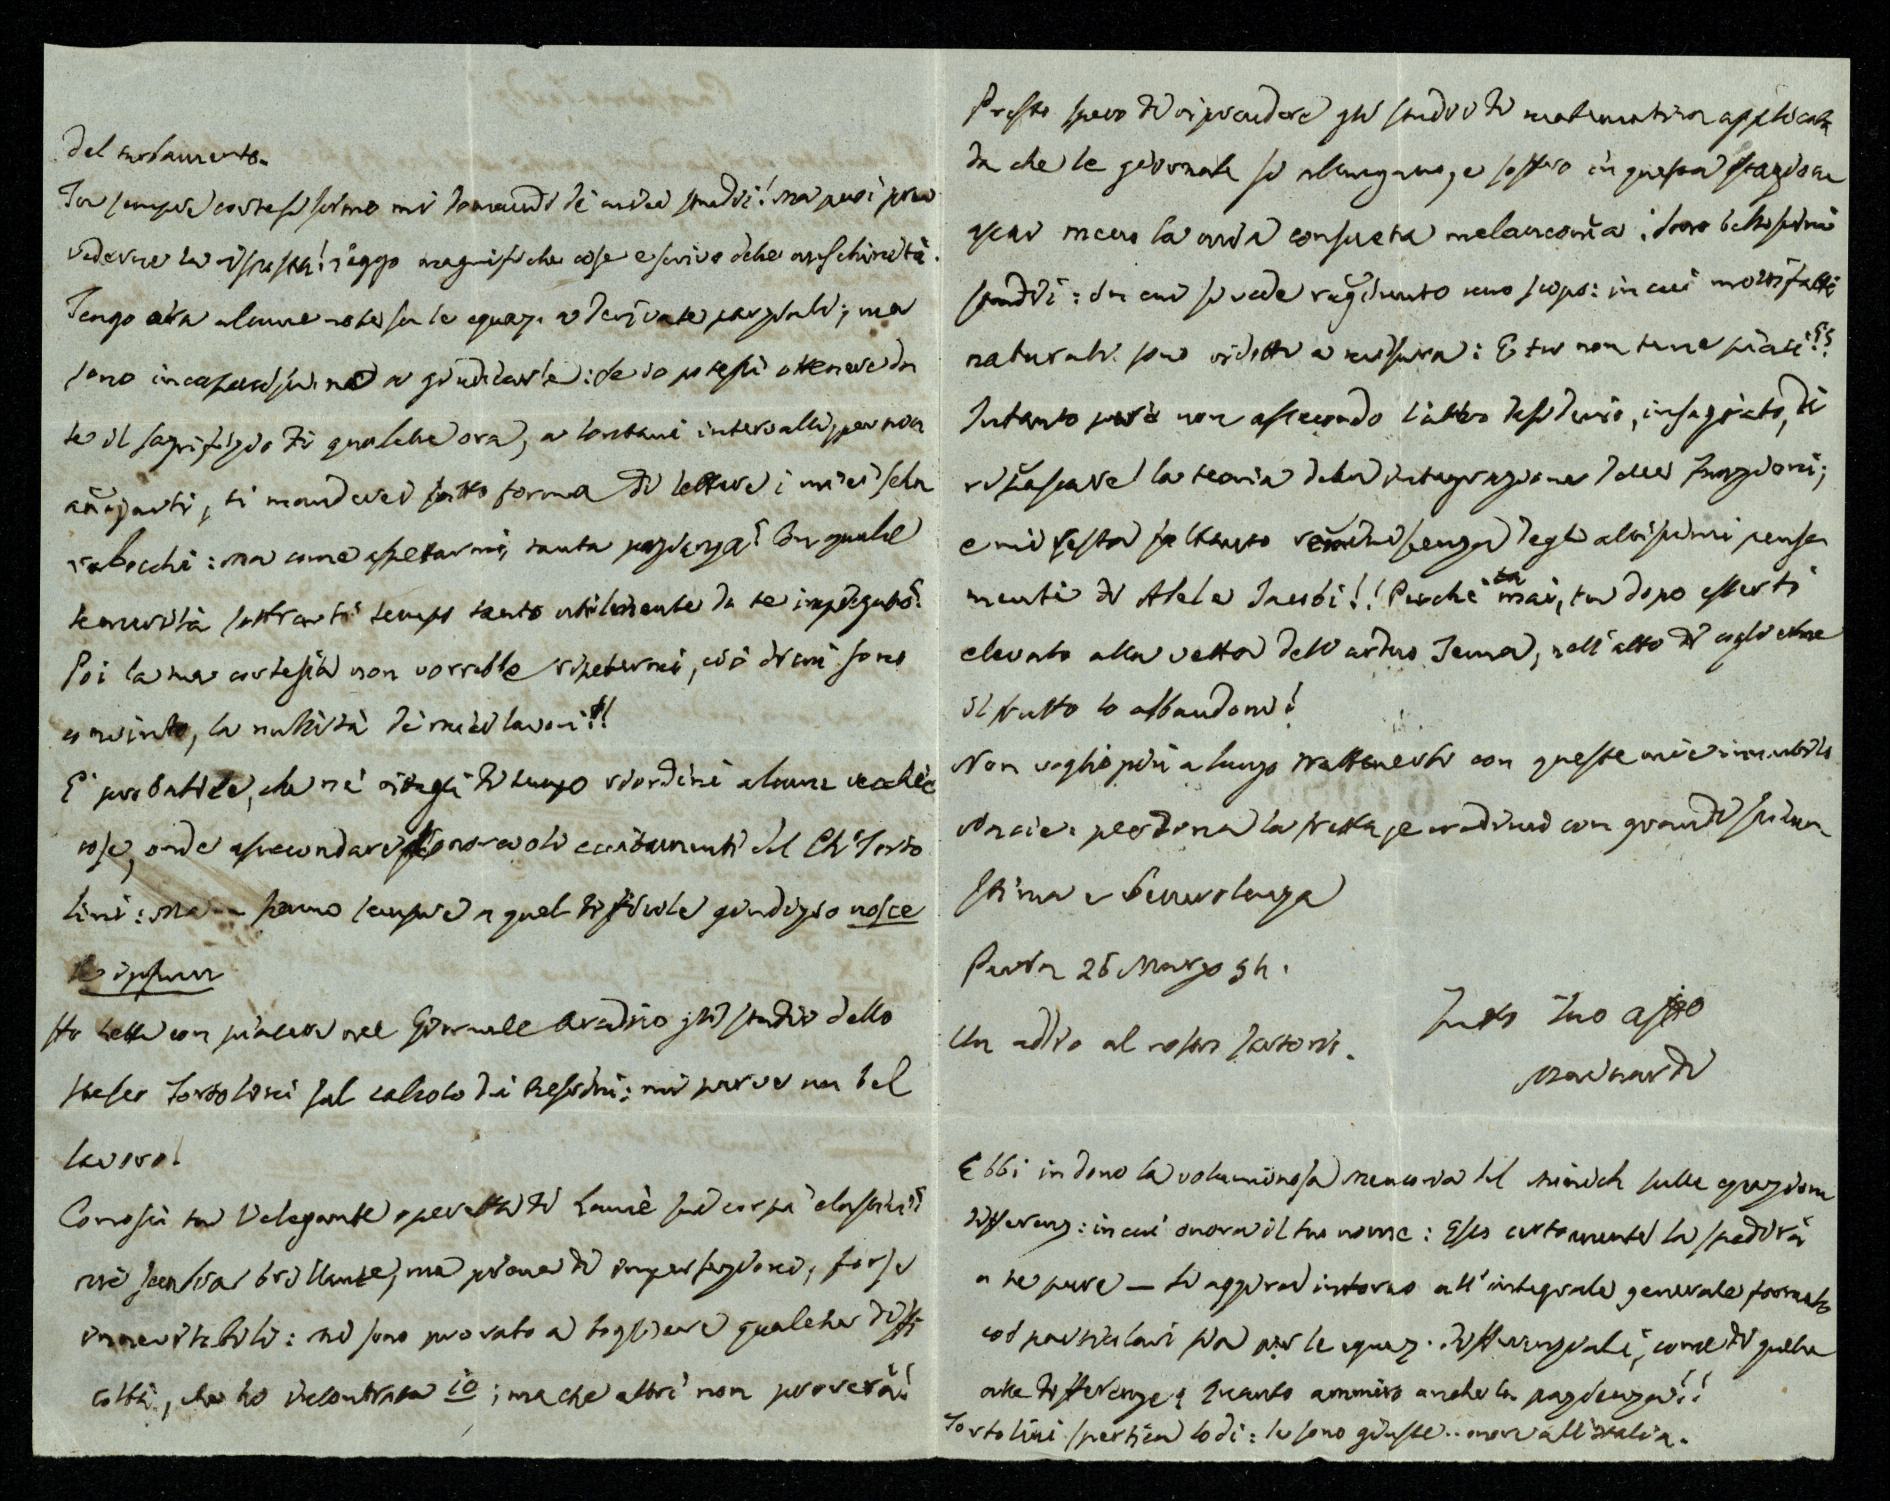 del turbamento.
Tu sempre cortesissimo mi domandi de' miei studi! Ma puoi pria
vederne la risposta! leggo magnifiche cose e scrivo delle meschinità.
Tengo ora alcune note su le equaz. a derivate parziali; ma
sono incapacissimo a giudicarle: se io potessi ottenere da
te il sagrifizio di qualche ora, a lontani intervalli, per non
annojarti, ti manderei sotto forma di lettere i miei scha
rabocchi: ma come aspettarmi tanta pazienza? Con quale
temerità sottrarti tempo tanto utilmente da te impiegato?
Poi la tua cortesia non vorrebbe ripetermi, ciò di cui sono
convinto, la nullità de' miei lavori!!
È probabile, che ne' ritagli di tempo riordini alcune vecchie
cose, onde assecondare gli onorevoli eccitamenti del Ch. Torto
lini: Ma penso sempre a quel difficile giudizio nosce
te ipsum
Ho letto con piacere nel Giornale Arcadico gli studi dello
stesso Tortolini sul calcolo dei Residui: mi parve un bel
lavoro!
Conosci tu l'elegante operetta di Lamè sui corpi elastici?
mi sembra brillante, ma piena di imperfezioni, forse
innevitabili: mi sono provato a togliere qualche diffi
coltà, che ho incontrata io; ma che altri non proverà!
Presto spero di riprendere gli studi di matematica applicata
da che le giornate si allungano, e soffro in questa stagione
assai meno la mia consueta melanconia: sono bellissimi
studi: in cui si vede raggiunto uno scopo: in cui molti fatti
naturali sono ridotti a misura: E tu non te ne piaci??
Intanto però non assecondo l'altro desiderio, insaziato, di
ripassare la teoria della integrazione delle funzioni;
e mi resta soltanto reminiscenza degli altissimi pensa
menti di Abel e Jacobi!! Perchè mai, tu dopo esserti
elevato alla vetta dell'arduo Tema, nell'atto di coglierne
il frutto lo abbandoni!
Non voglio più a lungo trattenerti con queste mie inutili
ciancie: perdona la fretta, e credimi con grandissima
stima e benevolenza
Pavia 26 Marzo 54.
Un addio al nostro Sartoris.
Tutto Tuo affmo
Mainardi
Ebbi in dono la voluminosa Memoria del Minich sulle equazioni
differenz: in cui onora il tuo nome: Esso certamente la spedirà
a te pure — Si aggira intorno all'integrale generale formato
coi particolari sia per le equaz. differenziali, come di quelle
alle differenze: Quanto ammiro anche la pazienza!!
Tortolini spertica lodi: se sono giuste .. onore all'Italia.